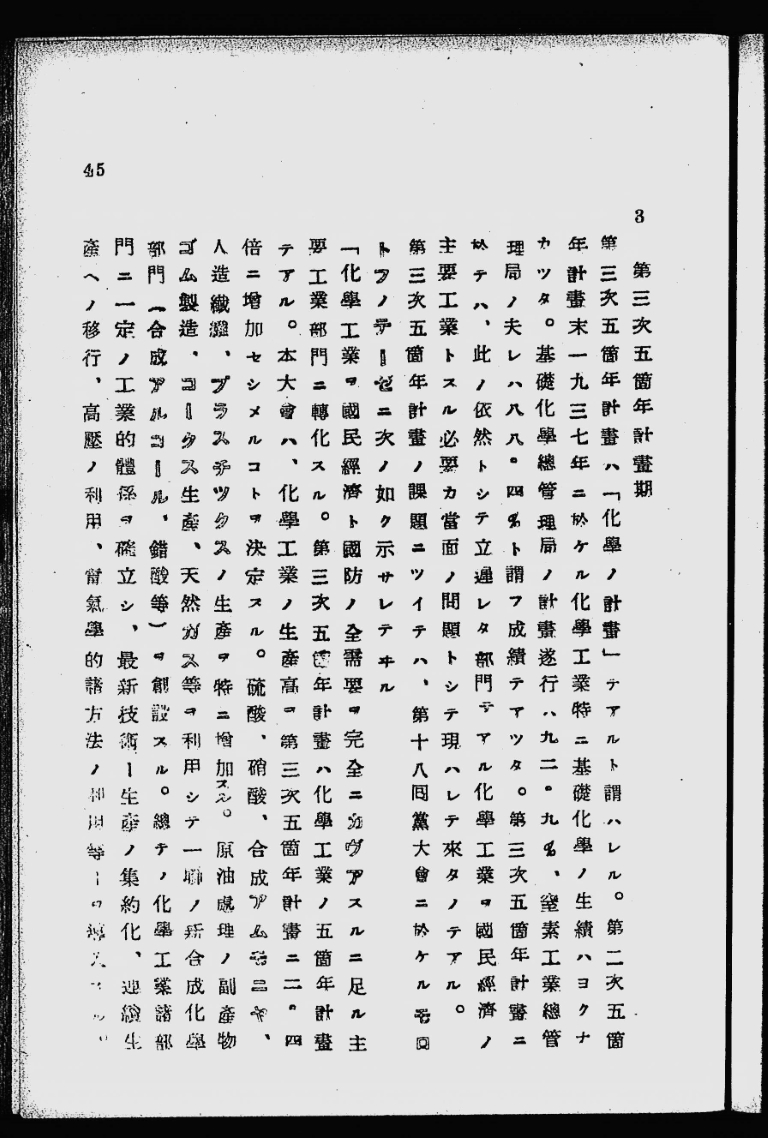 45
3 第三次五箇年計畫期
第三次五箇年計畫ハ「化學ノ計畫」テアルト謂ハレル。第二次五箇
年計畫末一九三七年ニ於ケル化學工業特ニ基礎化學ノ生績ハヨクナ
カツタ。基礎化學總管理局ノ計畫遂行ハ九二・九%、窒素工業總管
理局ノ夫レハ八八・四%ト謂フ成績テアツタ。第三次五箇年計畫ニ
於テハ、此ノ依然トシテ立遲レタ部門テアル化學工業ヲ國民經濟ノ
主要工業トスル必要カ當面ノ問題トシテ現ハレテ來タノテアル。
第三次五箇年計畫ノ課題ニツイテハ、第十八囘黨大會ニ於ケルモロ
トフノテーゼニ次ノ如ク示サレテヰル
「化學工業ヲ國民經濟ト國防ノ全需要ヲ完全ニカヴアスルニ足ル主
要工業部門ニ轉化スル。第三次五箇年計畫ハ化學工業ノ五箇年計畫
テアル。本大會ハ、化學工業ノ生產高ヲ第三次五箇年計畫ニ二・四
倍ニ增加セシメルコトヲ決定スル。硫酸、硝酸、合成アムモニヤ、
人造纖維、プラスチツクスノ生產ヲ特ニ增加スル。原油處理ノ副產物
ゴム製造、コークス生產、天然ガス等ヲ利用シテ一聯ノ新合成化學
部門(合成アルコール、錯酸等)ヲ創設スル。總テノ化學工業諸部
門ニ一定ノ工業的體係ヲ確立シ、最新技術ー生產ノ集約化、連續生
產ヘノ移行、高壓ノ利用、電氣學的諸方法ノ利用等ーヲ導入スル。